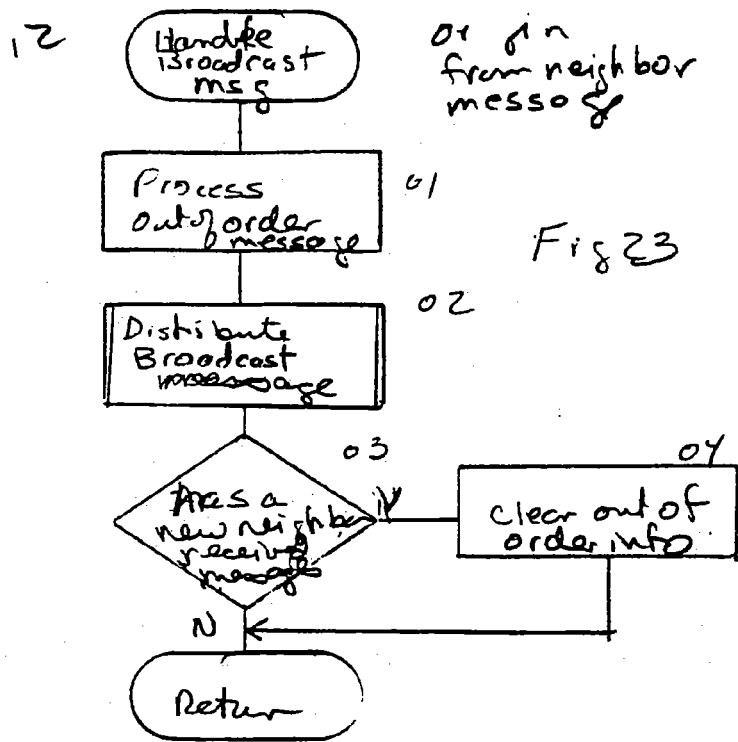 12
Handle
Broadcast
msg
from neighbor
message
Process
out of order
message
01
Fig 23
Distribute
Broadcast
message
02
03
Has a
new neighbor
received
message
Y
04
Clear out of
order info
N
Return